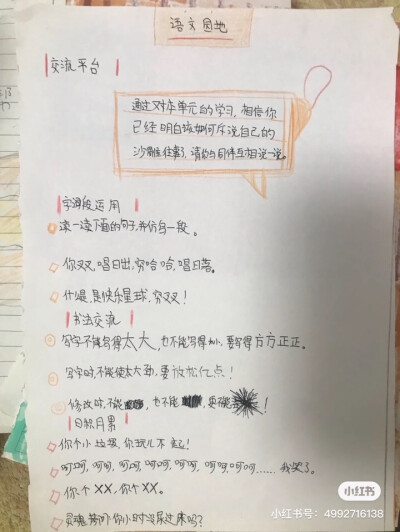 语文园地
交流平台
通过对本单元的学习,相信你
已经明白该如何斥说自己的
沙雕往事了,请你与同伴互相说一说。
字词句段运用
读一读下面的句子,并仿写一段。
你叒叕,唱日出,穷哈哈,唱日落。
什么是快乐星球,穷叕叕!
书法交流
写字不能写得太大,也不能写得太小,要写得方方正正。
写字时,不能使太大劲,要放松亿点!
修改时,不能,也不能,更不能!
日积月累
你个小垃圾,你玩儿不起!
呵呵,呵呵,呵呵,呵呵,呵呵,呵呵,呵呵……我笑了。
你个XX,你个XX。
灵魂拷问你小时没尿过床吗?
小红书
小红书号:4992716138